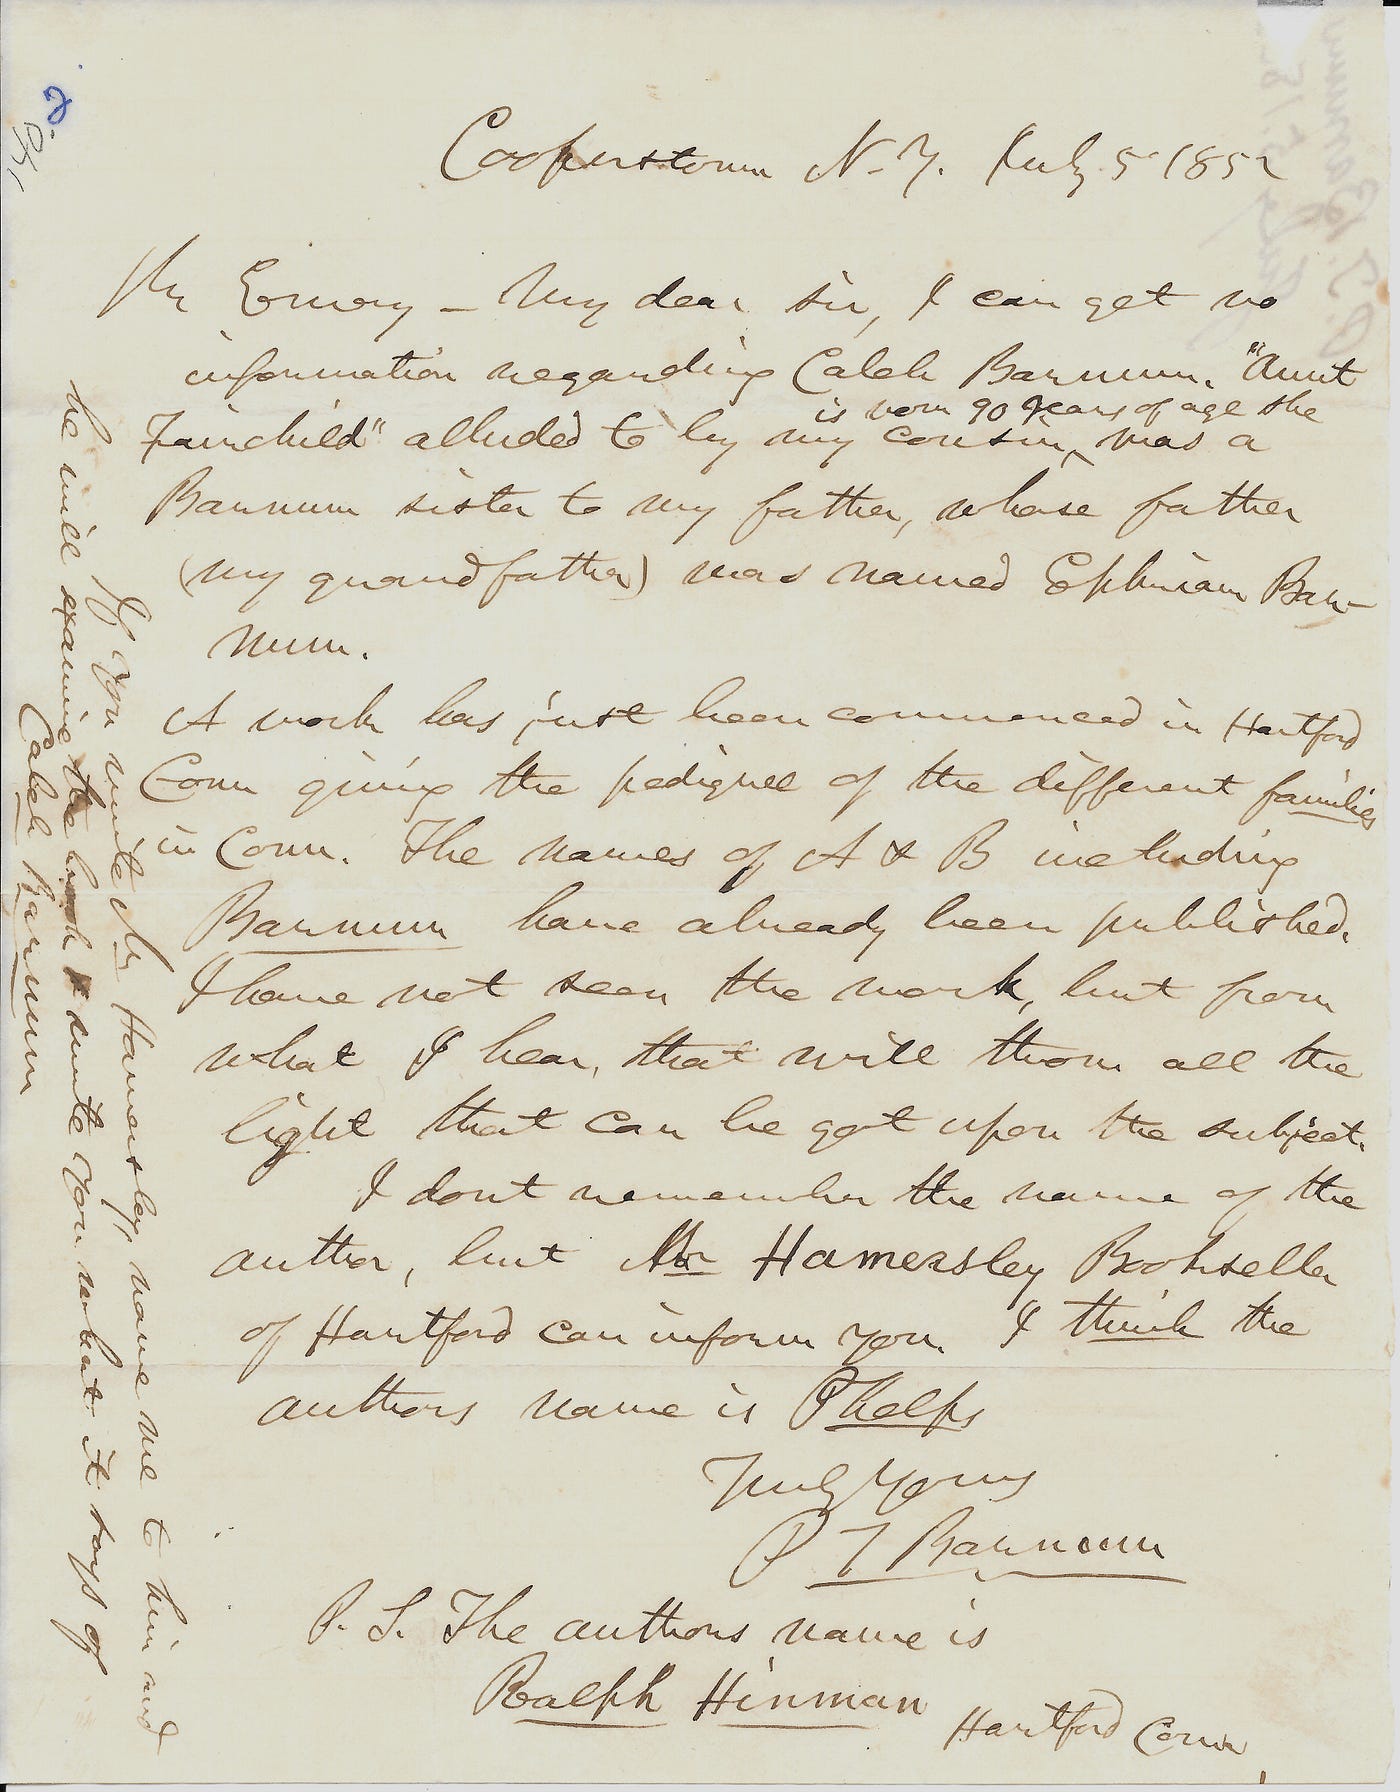 2
Cooperstown N.Y. July 5 1852
Mr Emory – My dear sir, I can get no
information regarding Caleb Barnum. "Aunt
is now 90 years of age she
Fairchild" alluded to by my cousin, ‸ was a
Barnum sister to my father, whose father
(my grandfather) was named Ephriam Bar-
num.
A work has just been commenced in Hartford
Conn giving the pedigree of the different families
in Conn. The names of A & B including
Barnum have already been published.
I have not seen the work, but from
what I hear, that will throw all the
light that can be got upon the subject.
I dont remember the name of the
author, but Mr Hamersley Bookseller
of Hartford can inform you. I think the
authors name is Phelps
Truly Yours
P T Barnum
P. S. The authors name is
Ralph Hinman
Hartford Conn.
If you write Mr Hamersley name me to him and
he will examine the book & write you what it says of
Caleb Barnum
P. T. Barnum